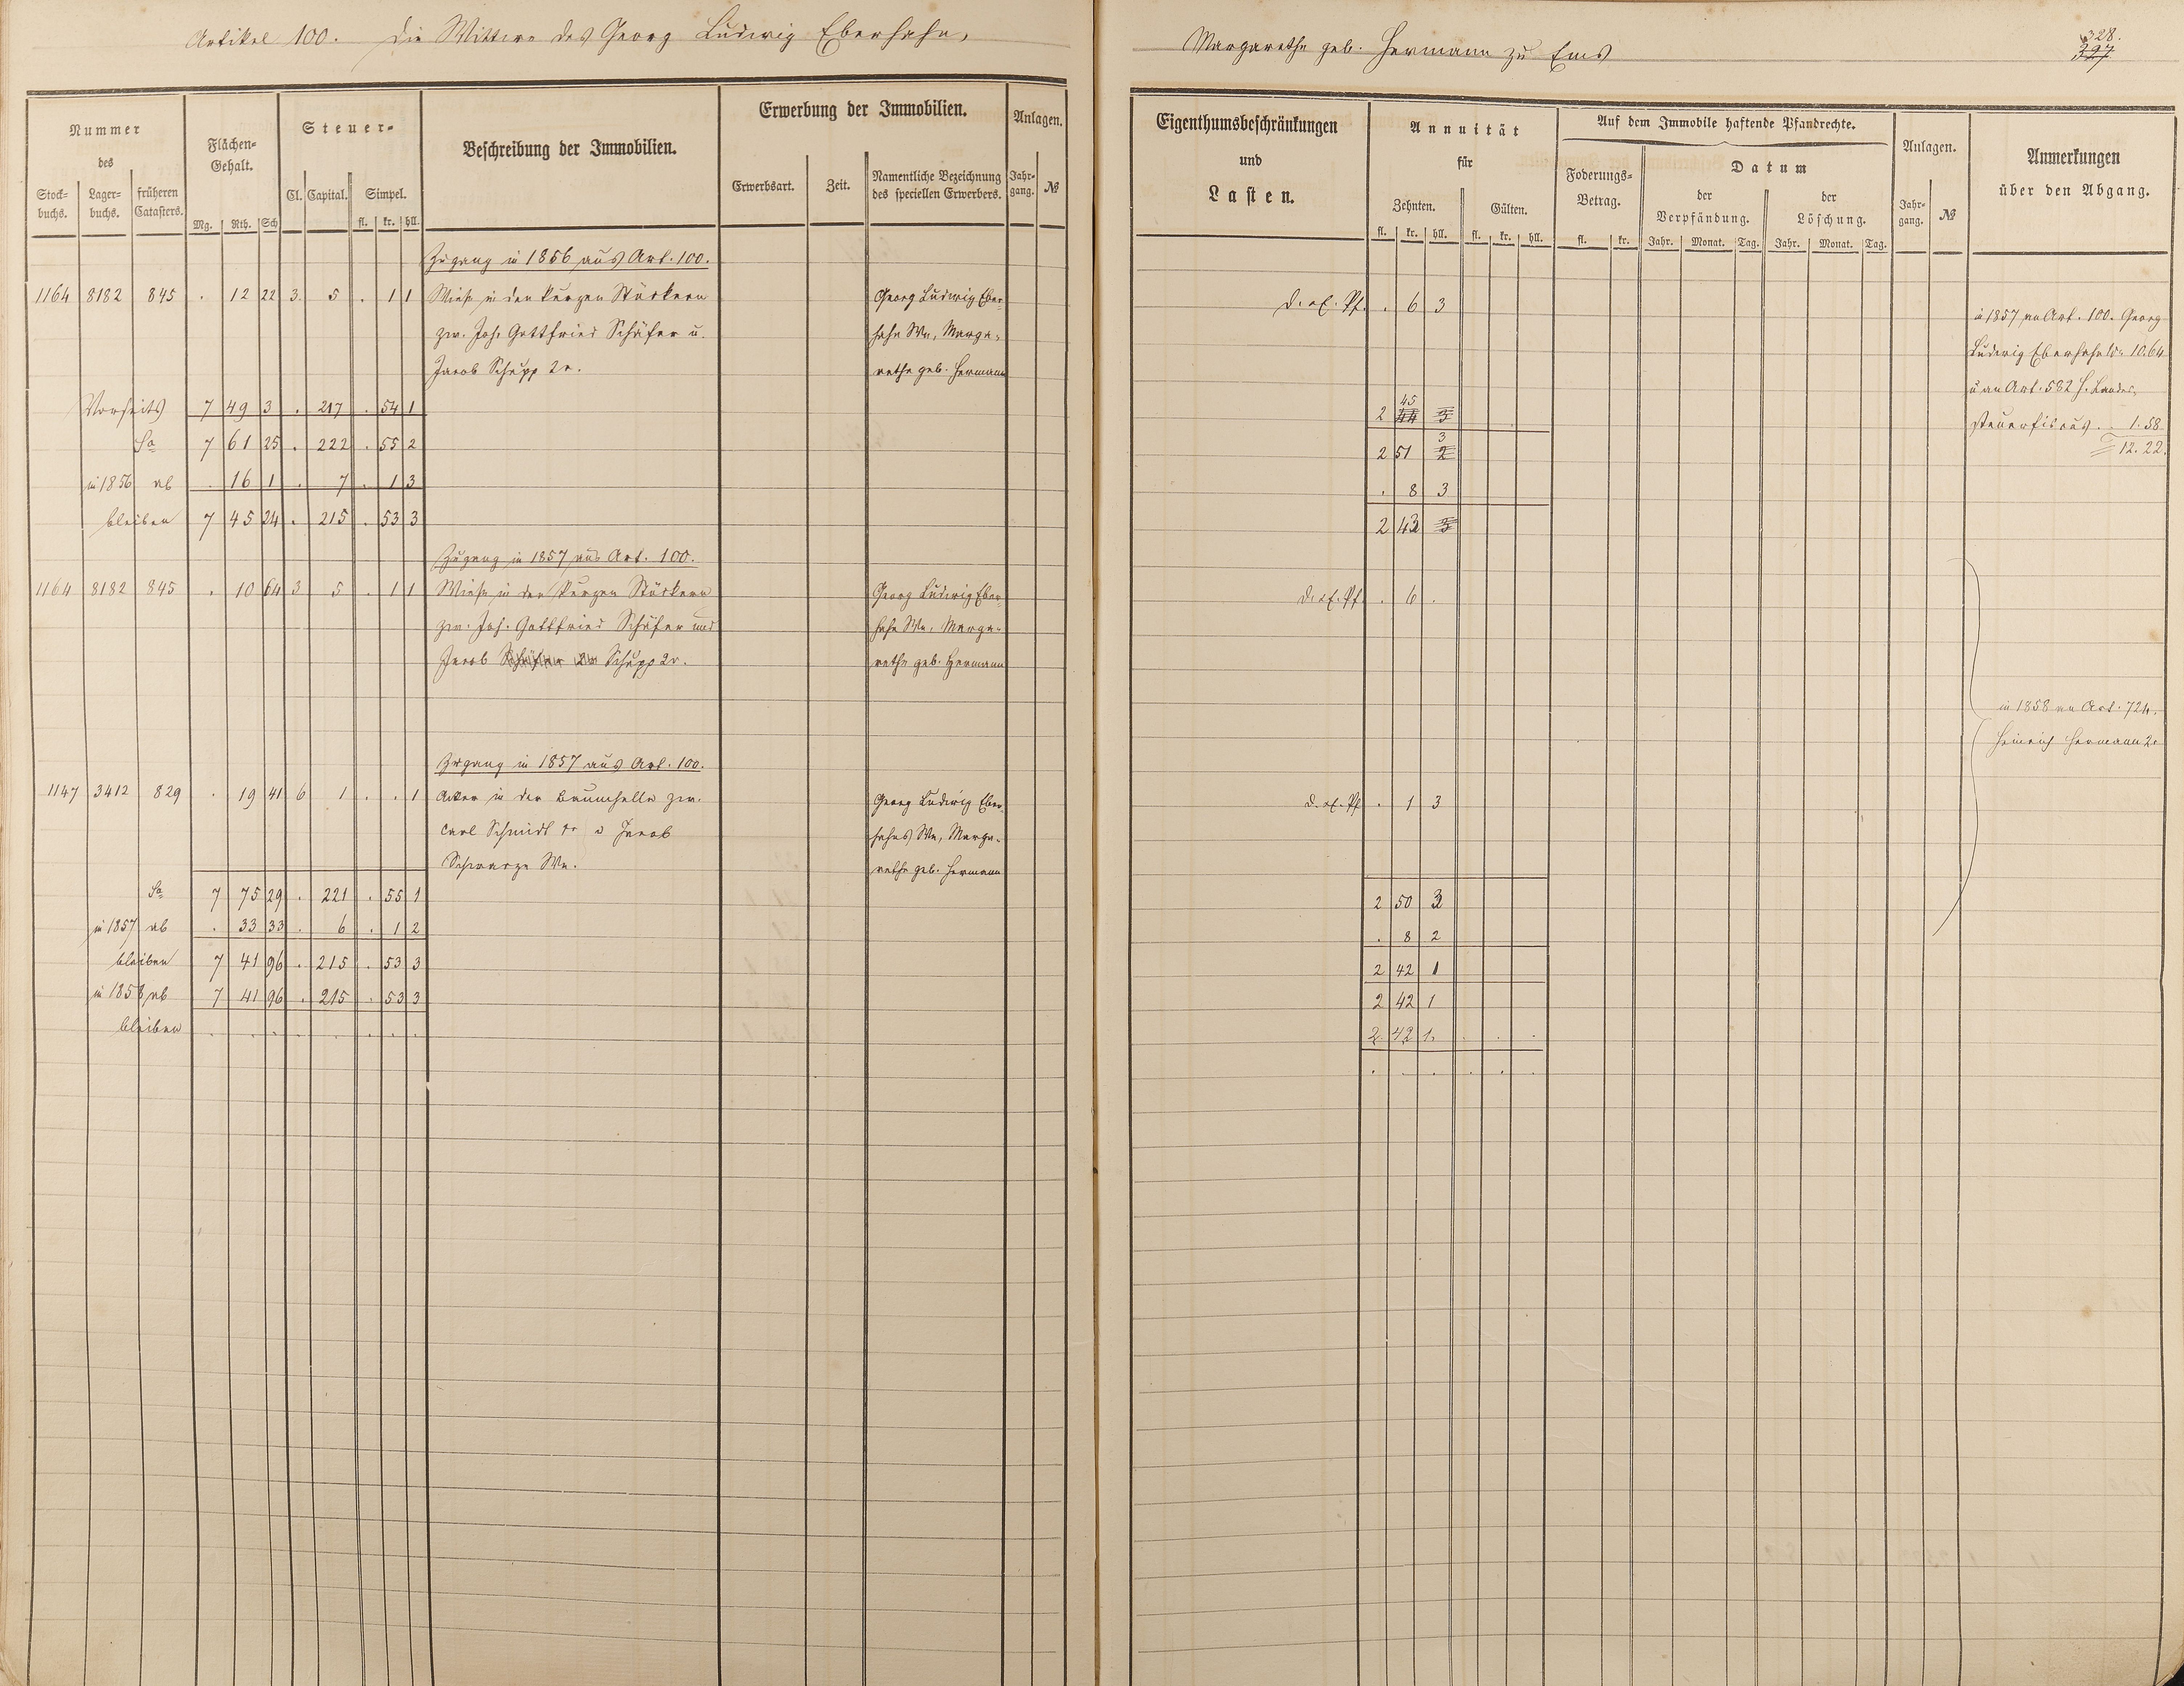 Artikel 100. Die Wittwe des Georg Ludwig Eberhahn,
Nummer
des
Stock-
buchs.
Lager-
buchs.
früheren
Catasters.
Flächen-
Gehalt.
Mg. Rth. Sch
Steuer-
Cl. Capital. Simpel.
fl. kr. hll.
Beschreibung der Immobilien.
Erwerbung der Immobilien.
Erwerbsart. Zeit.
Namentliche Bezeichnung
des speciellen Erwerbers.
Anlagen.
Jahr-
gang. №
Zugang in 1856 aus Art. 100.
1164 8182 845 . 12 22 3. 5 . 1 1 Wiese in den kurzen Stückern Georg Ludwig Eber-
zw. Joh. Gottfried Schäfer u. hahn We, Marga-
Jacob Schupp 2r. rethe geb. Hermann
Vorseits 7 49 3 . 217 . 54 1
Sa 7 61 25 . 222 . 55 2
in 1856 ab . 16 1 . 7 . 1 3
bleiben 7 45 24 . 215 . 53 3
Zugang in 1857 aus Art. 100.
1164 8182 845 . 10 64 3 5 . 1 1 Wiese in den kurzen Stückern Georg Ludwig Eber-
zw. Joh. Gottfried Schäfer und hahn We, Marga-
Jacob Schäfer 2r Schupp 2r. rethe geb. Hermann
Zugang in 1857 aus Art. 100.
1147 3412 829 . 19 41 6 1 . . 1 Acker in der zw. Georg Ludwig Eber-
Carl Schmidt u Jacob hahns We, Marga-
We. rethe geb. Hermann
Sa 7 75 29 . 221 . 55 1
in 1857 ab . 33 33 . 6 . 1 2
bleiben 7 41 96 . 215 . 53 3
in 1858 ab 7 41 96 . 215 . 53 3
bleiben . . . . . . . .
Margarethe geb. Hermann zu Ems
328.
327
Eigenthumsbeschränkungen
und
Lasten.
Annuität
für
Zehnten. Gülten.
fl. kr. hll. fl. kr. hll.
Auf dem Immobile haftende Pfandrechte.
Foderungs-
Betrag.
fl. kr.
Datum
der
Verpfändung.
Jahr. Monat. Tag.
der
Löschung.
Jahr. Monat. Tag.
Anlagen.
Jahr-
gang. №
Anmerkungen
über den Abgang.
D. ref. Pf. . 6 3
in 1857 an Art. 100. Georg
Ludwig Eberhahn We 10.64
u an Art. 582 H. Landes-
steuerfiscus . . 1.58.
12.22.
45
2 44 3
3
2 51 2
. 8 3
2 43 3
D. ref. Pf. . 6 .
in 1858 an Art. 724.
Heinrich Hermann 2r
D. ref. Pf . 1 3
2 50 3
. 8 2
2 42 1
2 42 1
2. 42 1. . . .
. . . . . .